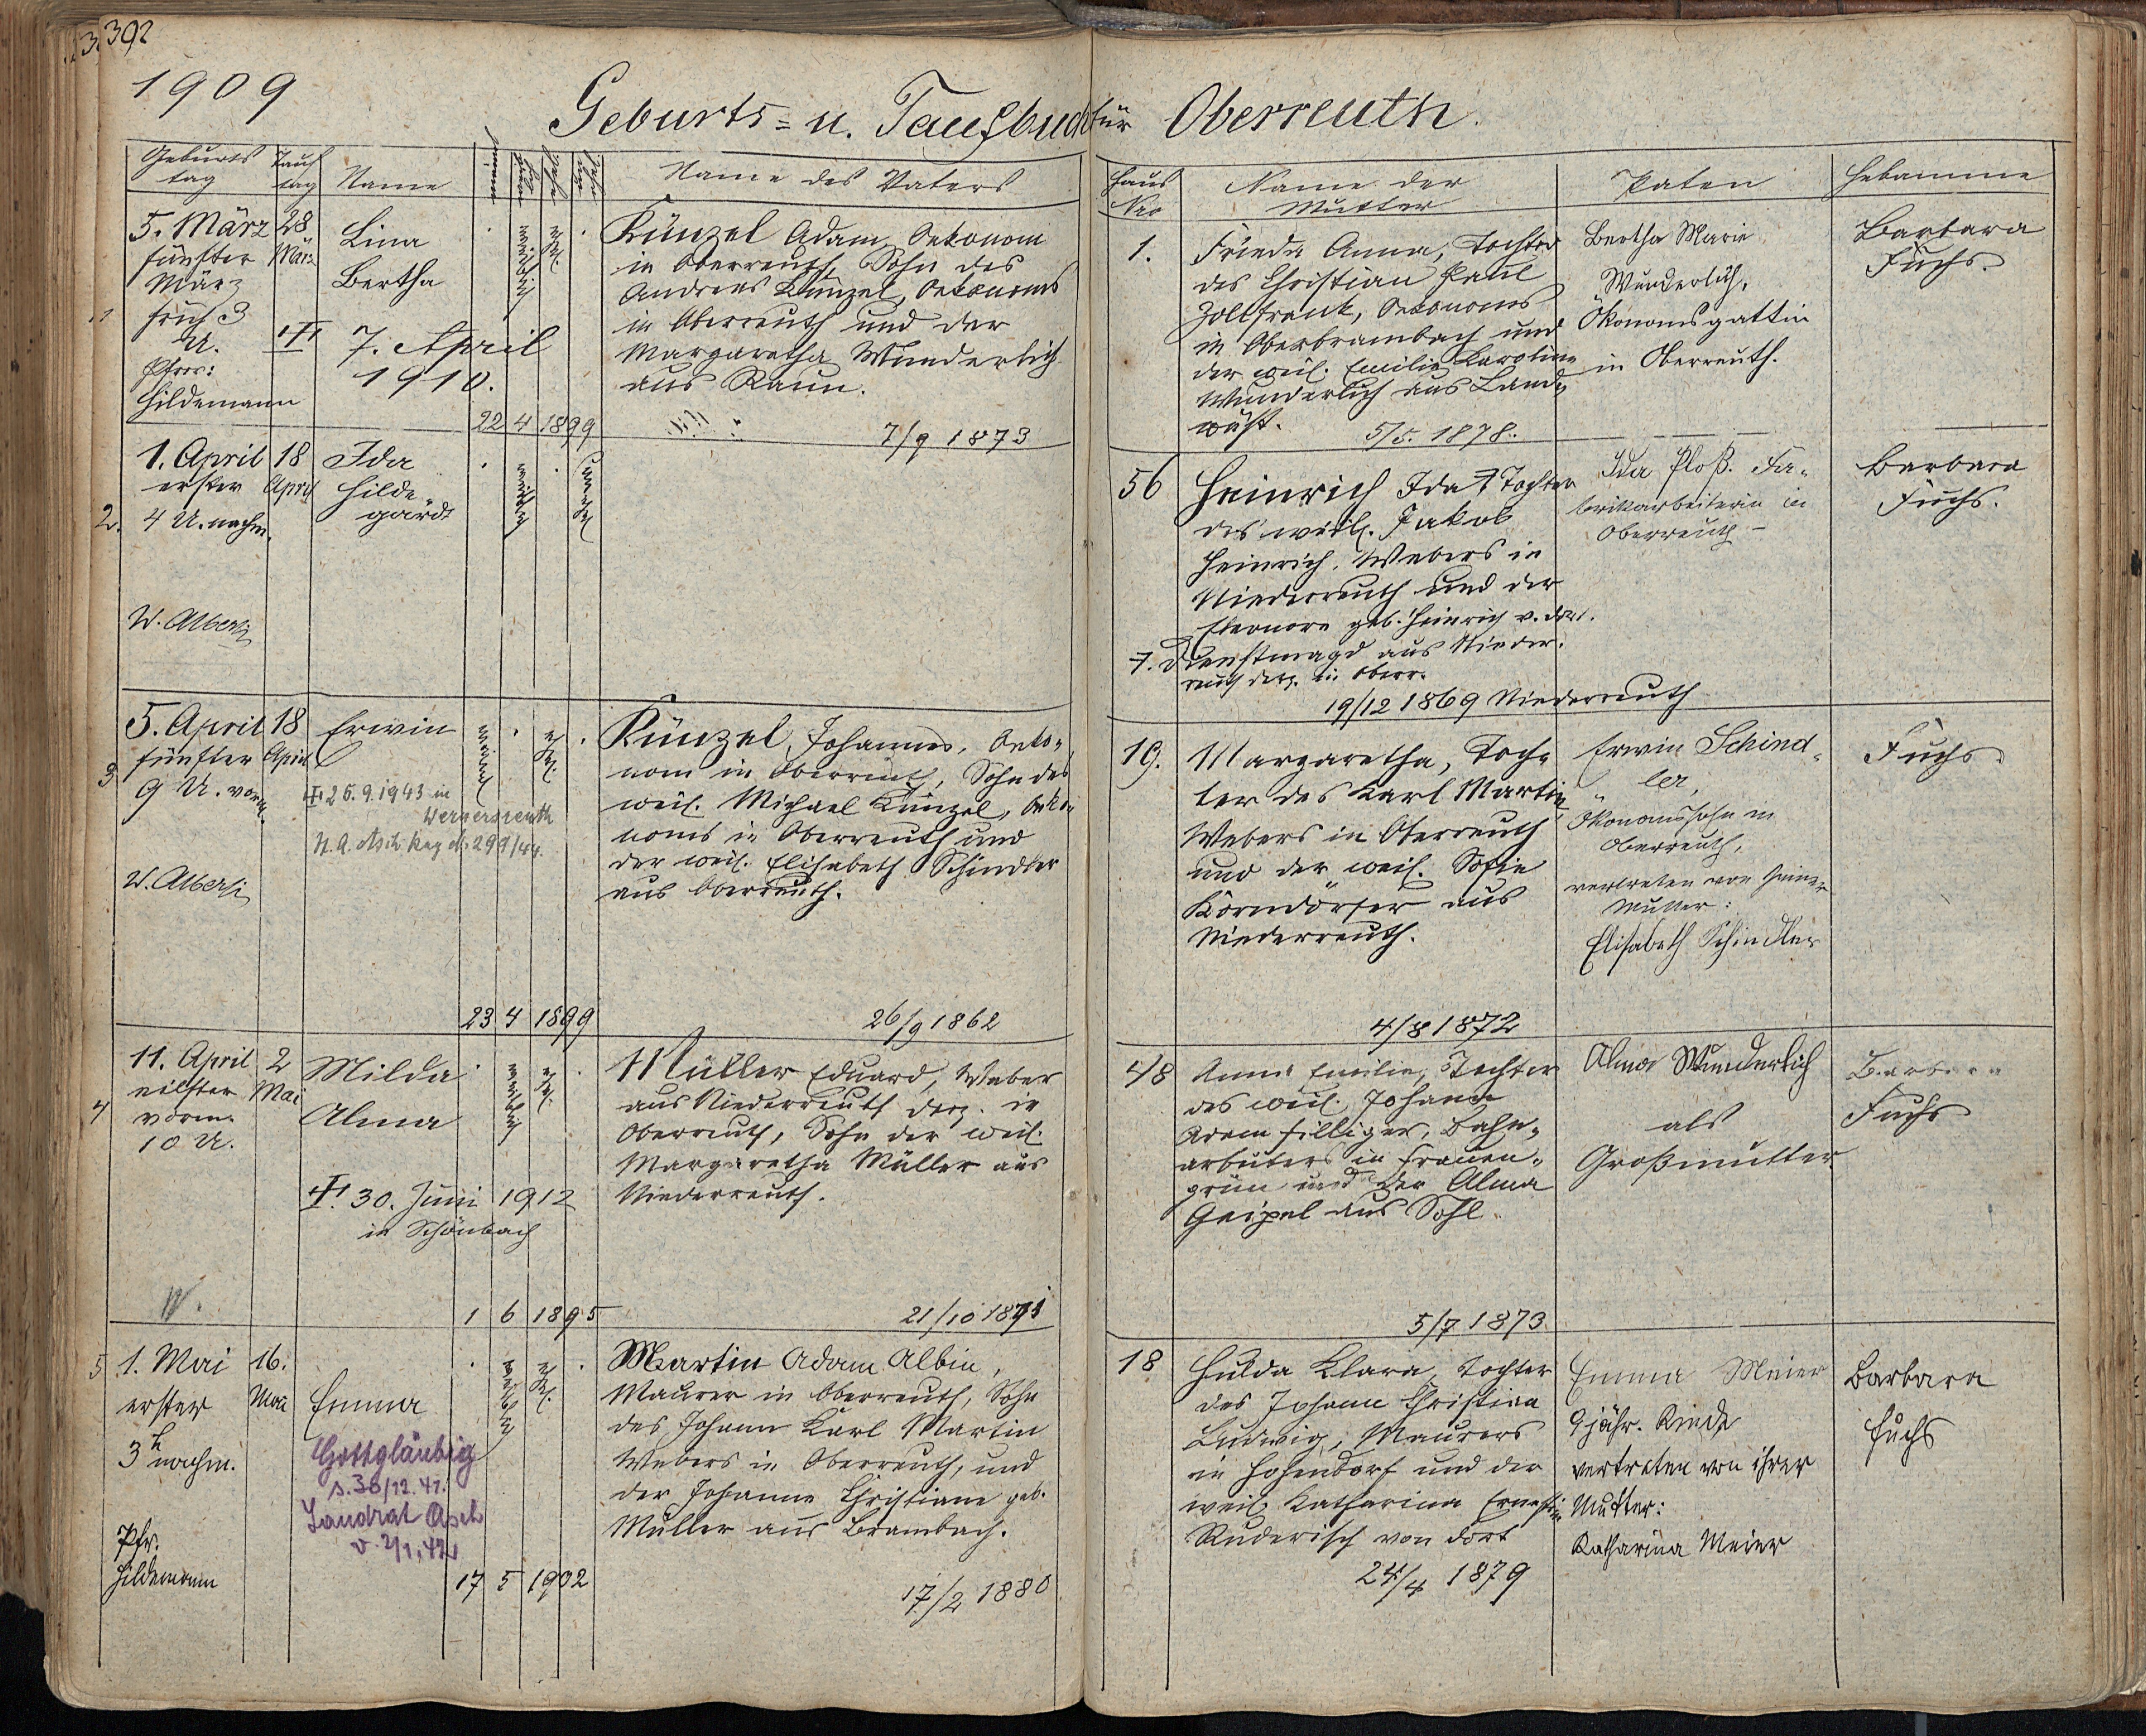 392
1909
Geburts= u. Taufbuch für Oberreuth.
Geburts
tag
Tauf
tag
Name
Name des Vaters
Haus
Nro
Name der
Mutter
Paten
Hebamme
1
5. März
fünfter
März
früh 3
U.
Pfrr:
Hildemann
28
März
Lina
Bertha
7. April
1910.
weiblich
ehel.
22 4 1899
Künzel Adam, Oekonom
in Oberreuth, Sohn des
Andreas Künzel, Oekonoms
in Oberreuth und der
Margaretha Wunderlich
aus Raun.
7/9 1873
1.
Frieda Anna, Tochter
des Christian Paul
Zollfrank, Oekonoms
in Oberbrambach und
der weil. Emilie Karoline
Wunderlich aus Land-
wüst.
5/5. 1878.
Bertha Marie
Wunderlich,
Ökonomsgattin
in Oberreuth.
Barbara
Fuchs.
2.
1. April
erster
4 U. nachm.
W. Alberti
18
April
Ida
Hilde
gard
weiblich
unehel.
56
Heinrich Ida Tochter
des weil. Jakob
Heinrich, Webers in
Niederreuth und der
Eleonore geb. Heinrich v. dort.
Dienstmagd aus Nieder-
reuth derz. in Oberr.
19/12 1869 Niederreuth
Ida Ploß. Fa-
brikarbeiterin in
Oberreuth
Barbara
Fuchs.
3
5. April
fünfter
9 U. vorm.
W. Alberti
18
April
Erwin
26.9.1943 in
Wernersreuth
männl.
ehel.
23 4 1899
Künzel, Johannes, Oeko-
nom in Oberreuth, Sohn des
weil. Michael Künzel, Oeko-
noms in Oberreuth und
der weil. Elisabeth Schindler
aus Oberreuth.
26/9 1862
19.
Margaretha, Toch-
ter des Karl Martin,
Webers in Oberreuth
und der weil. Sofie
Körndörfer aus
Niederreuth.
4/8 1872
Erwin Schind-
ler,
Ökonomssohn in
Oberreuth,
vertreten von seiner
Mutter:
Elisabeth Schindler
Fuchs
4
11. April
eilfter
vorm.
10 U.
W.
2
Mai
Milda
Alma
30. Juni 1912
in Schönbach
weiblich
ehel.
1 6 1895
Müller Eduard, Weber
aus Niederreuth derz. in
Oberreuth, Sohn der weil.
Margaretha Müller aus
Niederreuth.
21/10 1871
48
Anna Emilie, Tochter
des weil. Johann
Adam Hilliger, Bahn-
arbeiters in Frauen-
grün und der Alma
Geipel aus Sohl
5/7 1873
Alma Wunderlich
als
Großmutter
Barbara
Fuchs
5
1. Mai
erster
3 h nachm.
Pfr.
Hildemann
16.
Mai
Emma
Gottgläubig
s. 30/12.41.
Landrat Asch
v. 2/1.42
weiblich
ehel.
17 5 1902
Martin Adam Albin,
Maurer in Oberreuth, Sohn
des Johann Karl Martin
Webers in Oberreuth, und
der Johanne Christiane geb.
Müller aus Brambach.
17/2 1880
18
Hulda Klara, Tochter
des Johann Christian
Ludwig, Maurers
in Hohendorf und der
weil. Katharina Ernestine
Ruderisch von dort
24/4 1879
Emma Meier
9jähr. Kinde
vertreten von ihrer
Mutter:
Katharina Meier
Barbara
Fuchs